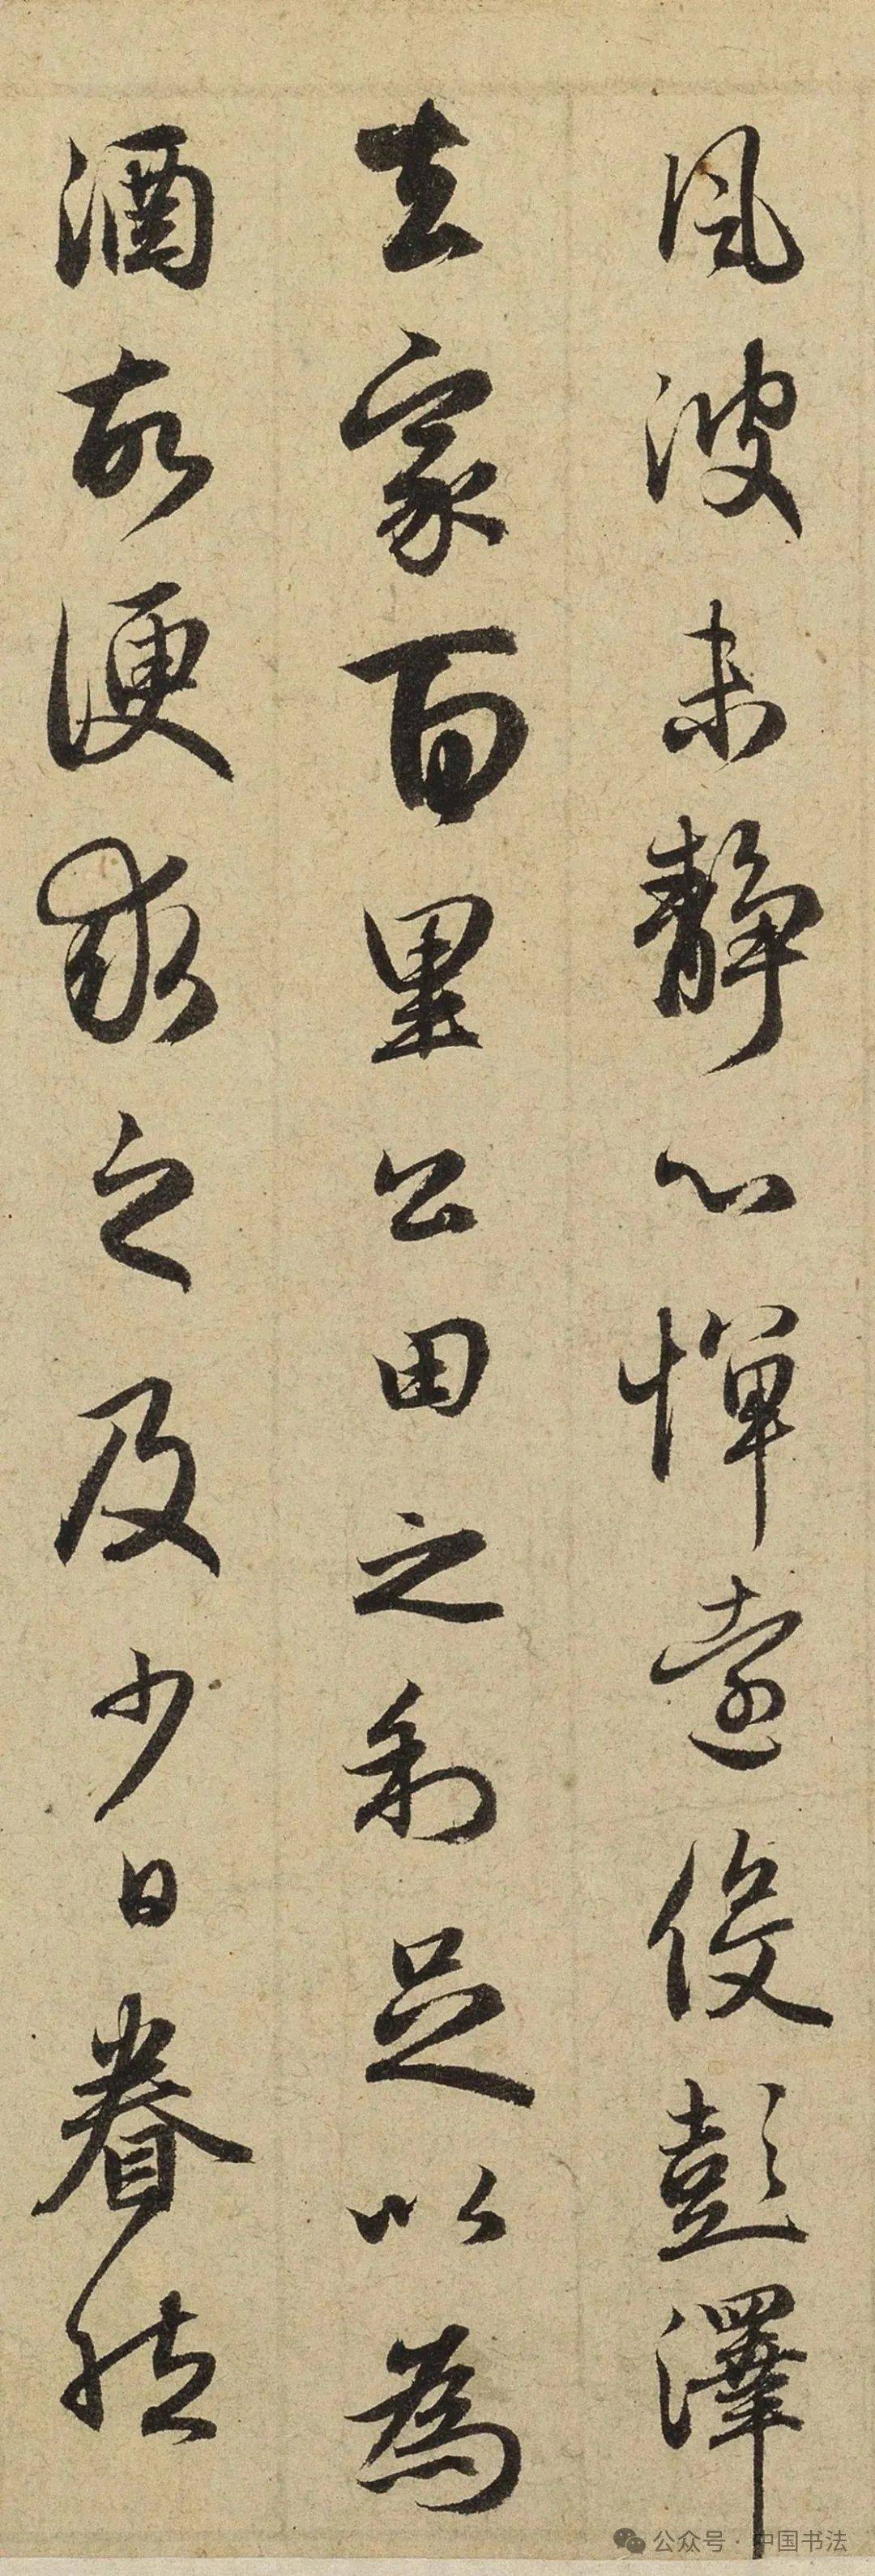 風波未靜心憚遠役彭澤
去家百里公田之利足以為
酒故便求之及少日眷然
公众号·中国书法